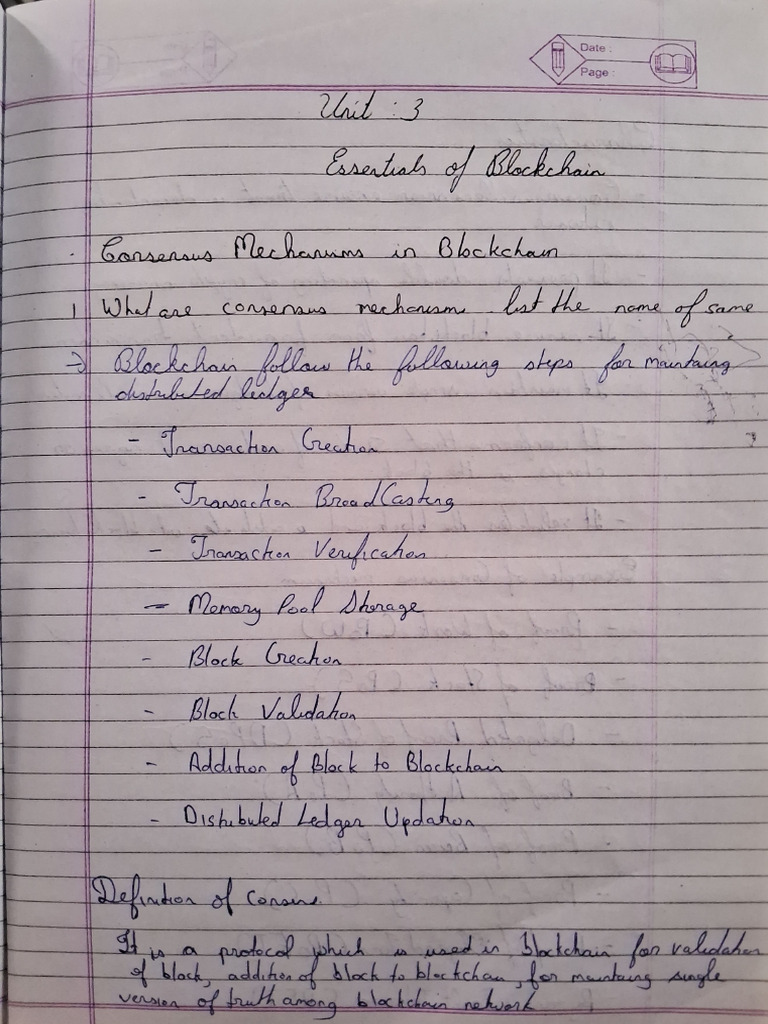 Date :
Page :
Unit : 3
Essentials of Blockchain
. Consensus Mechanisms in Blockchain
1 What are consensus mechanism list the name of same
→ Blockchain follow the following steps for maintaing
distributed ledger
- Transaction Creation
- Transaction BroadCasting
- Transaction Verification
- Memory Pool Storage
- Block Creation
- Block Validation
- Addition of Block to Blockchain
- Distributed Ledger Updation
Definition of Consens.
It is a protocol which is used in blockchain for validation
of block, addition of block to blockchain, for maintaing single
version of truth among blockchain network